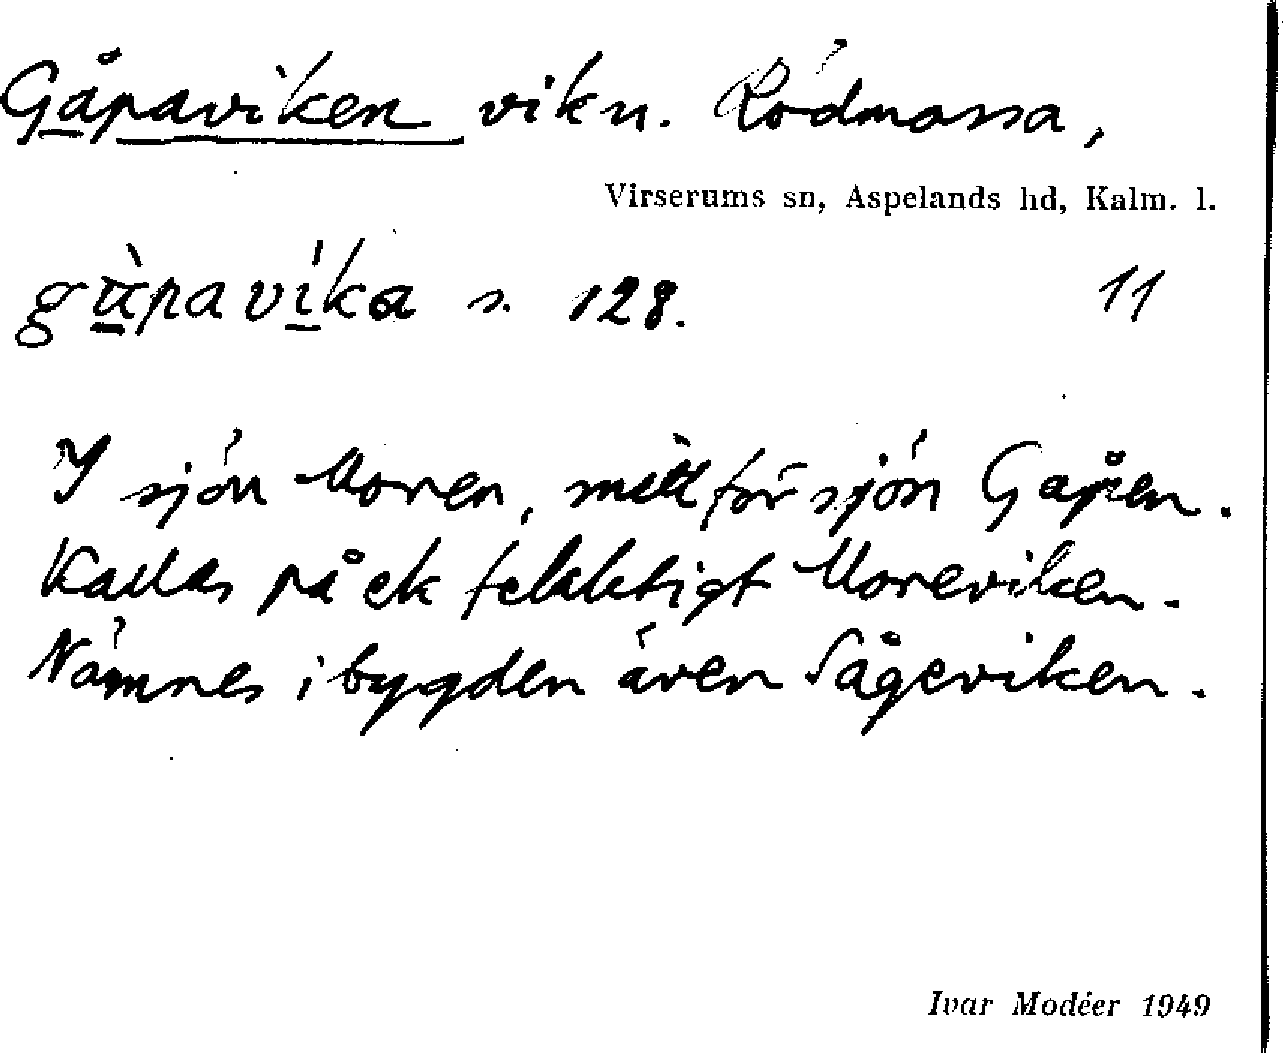 Gåpaviken vikn. Rödmossa,
Virserums sn, Aspelands hd, Kalm. l.
gùpavíka s. 128. 11
I sjön Moren, mitt för sjön Gåpen.
Kallas på ek felaktigt Moreviken.
Nämnes i bygden även Sågeviken.
Ivar Modéer 1949